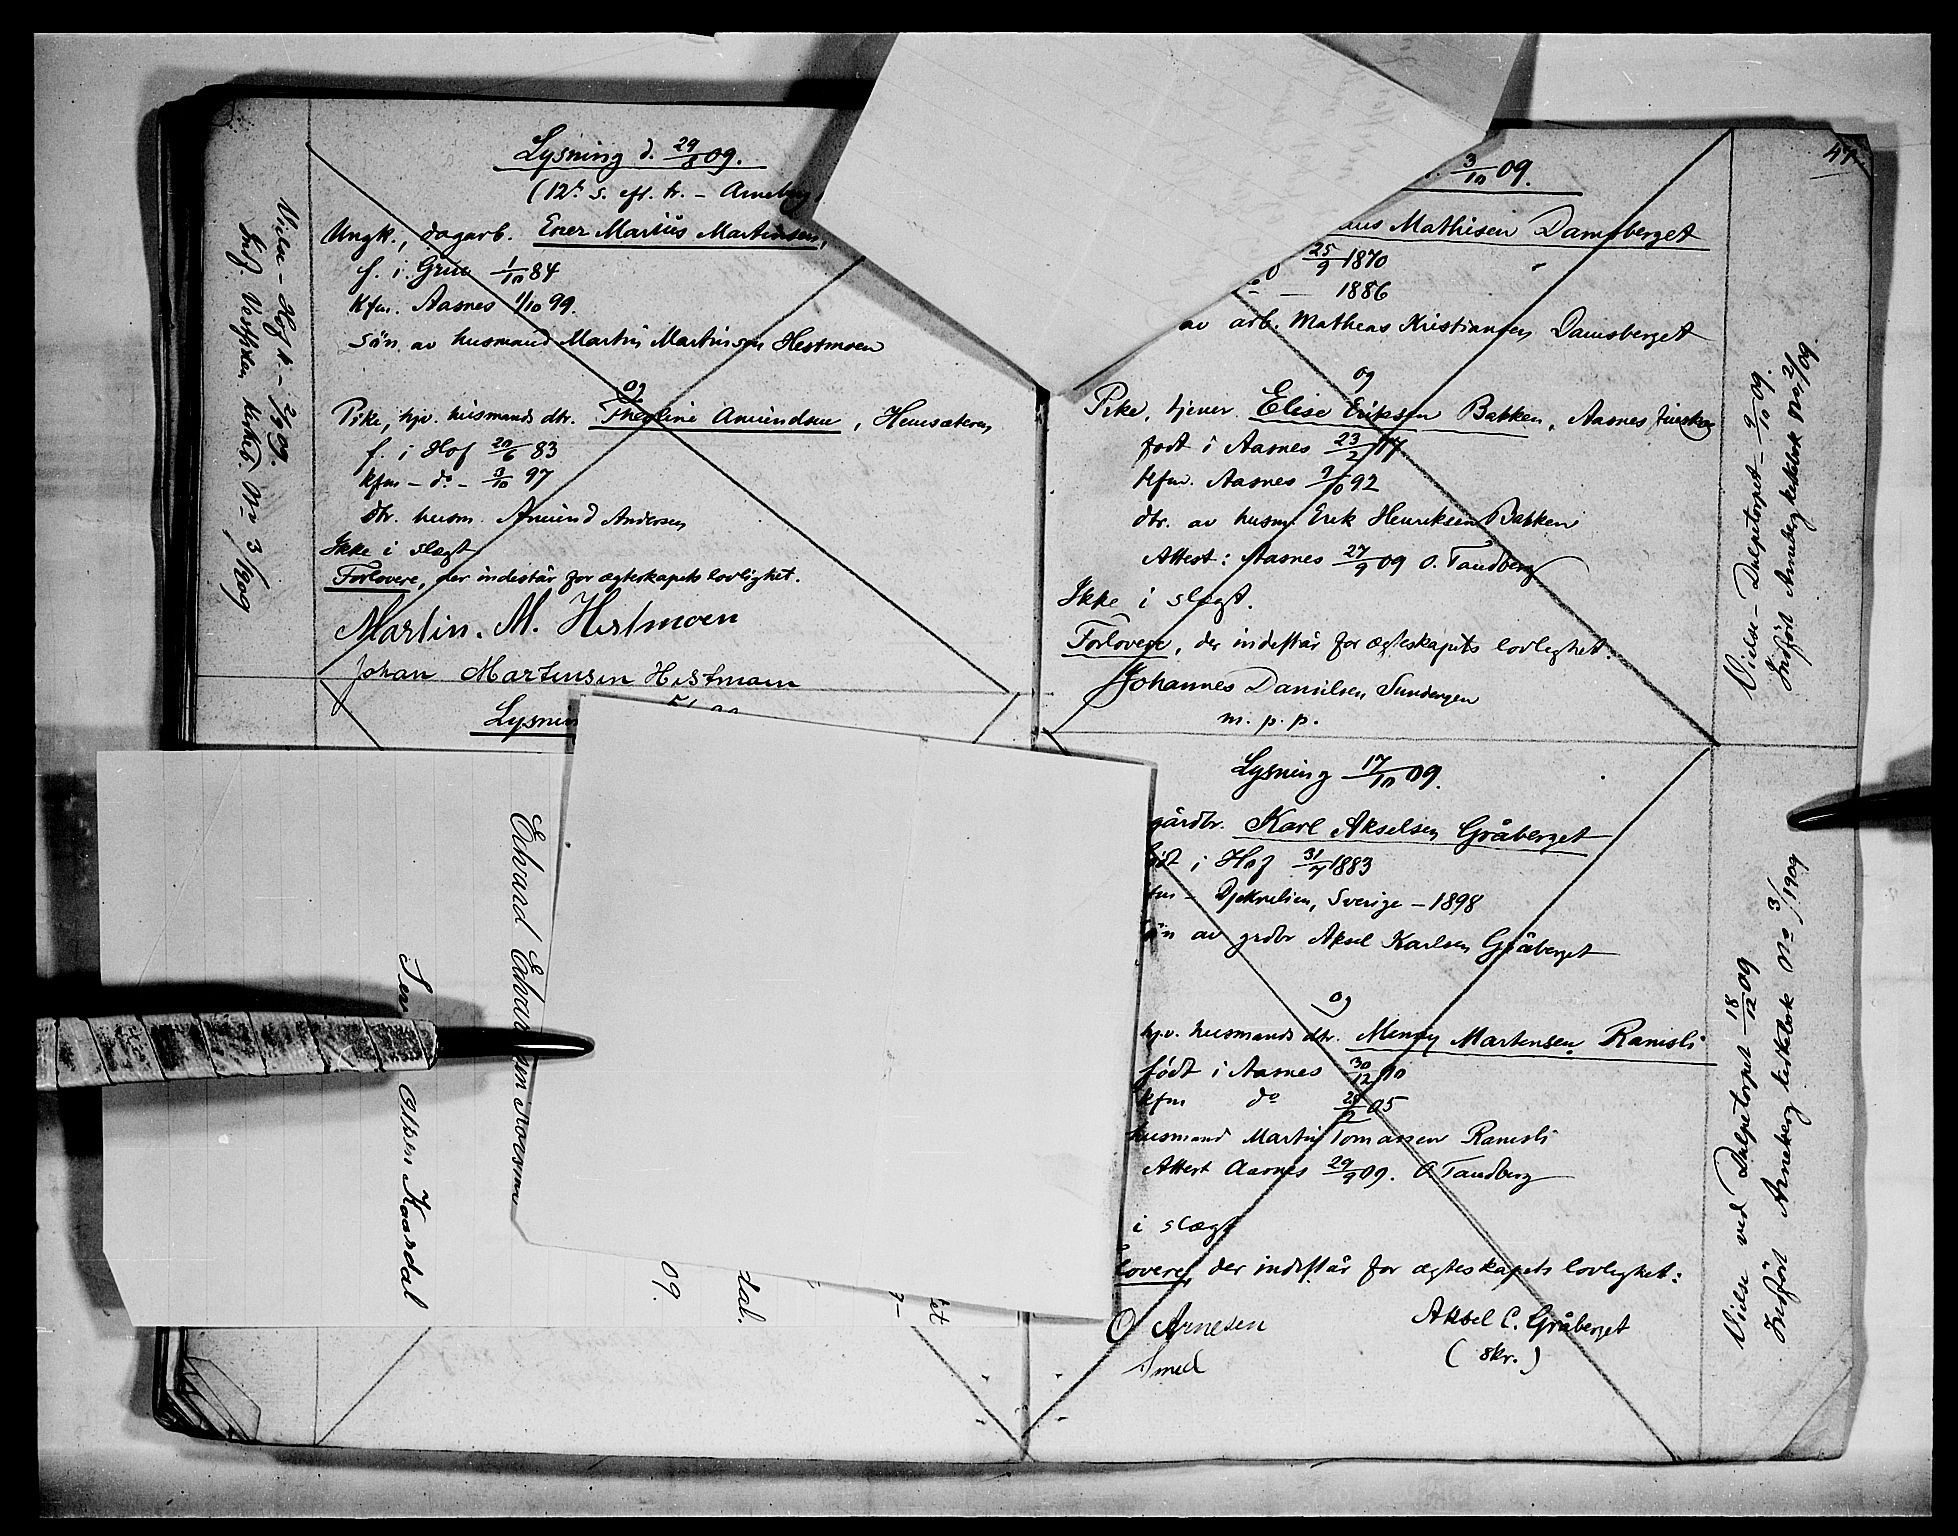 Lysning d. 29/8 09.
(12te s. eft. tr. - Arneberg
Ungk., dagarb. Ener Marius Martinsen,
f. i Grue 1/10 84
kfm. Aasnes 1/10 99.
sön av husmand Martin Martinsen Hestmoen
og
Pike, hjv. husmands dtr. Theoline Amundsen,
f. i Hof 20/6 83
kfm - do - 3/10 97
dtr. husm. Amund Andersen
Ikke i slægt
Forlovere, der indestår for ægteskapets lovlighet.
Martin. M. Hestmoen
Johan Martinsen Hestmoen
Vielse - Hof k. - 09.
Indf. Kirkeb. No 3/1909
Lysnin
Edvard Edvar sen
Olsen Kaasdal
dal.
09.
et
47.
3/10 09.
Mathisen Damsberget
25/9 1870
1886
av arb. Matheas Kristiansen Damsberget
og
Pike, tjener Elise Eriksen Bakken, Aasnes
født i Aasnes 23/2 77
kfm. Aasnes 9/10 92
dtr. av husm. Erik Henriksen Bakken
Attest: Aasnes 27/9 09 O. Tandberg
Ikke i slægt.
Forlovere, der indestår for ægteskapets lovlighet:
Johannes Danielsen
m. p. p.
Vielse - Dulpetorpet - 9/10 09.
Indført Arneberg kirkebok No 2/09.
Lysning 17/10 09.
gårdbr. Karl Akselsen Gråberget
i Hof 31/7 1883
- Sverige - 1898
av grdbr Aksel Karlsen Gråberget
og
hjv. husmands dtr. Menny Martinsen Ramsli
født i Aasnes 30/12 90
kfm do 05
husmand Martin Tomassen Ramsli
Attest Aasnes 29/9 09. O Tandberg
i slægt
lovere, der indestår for ægteskapets lovlighet:
O Arnesen
Smed
Aksel C. Gråberget
(skr.)
Vielse ved Dulpetorpet 18/12 09
Indført Arneberg kirkebok No 3/1909